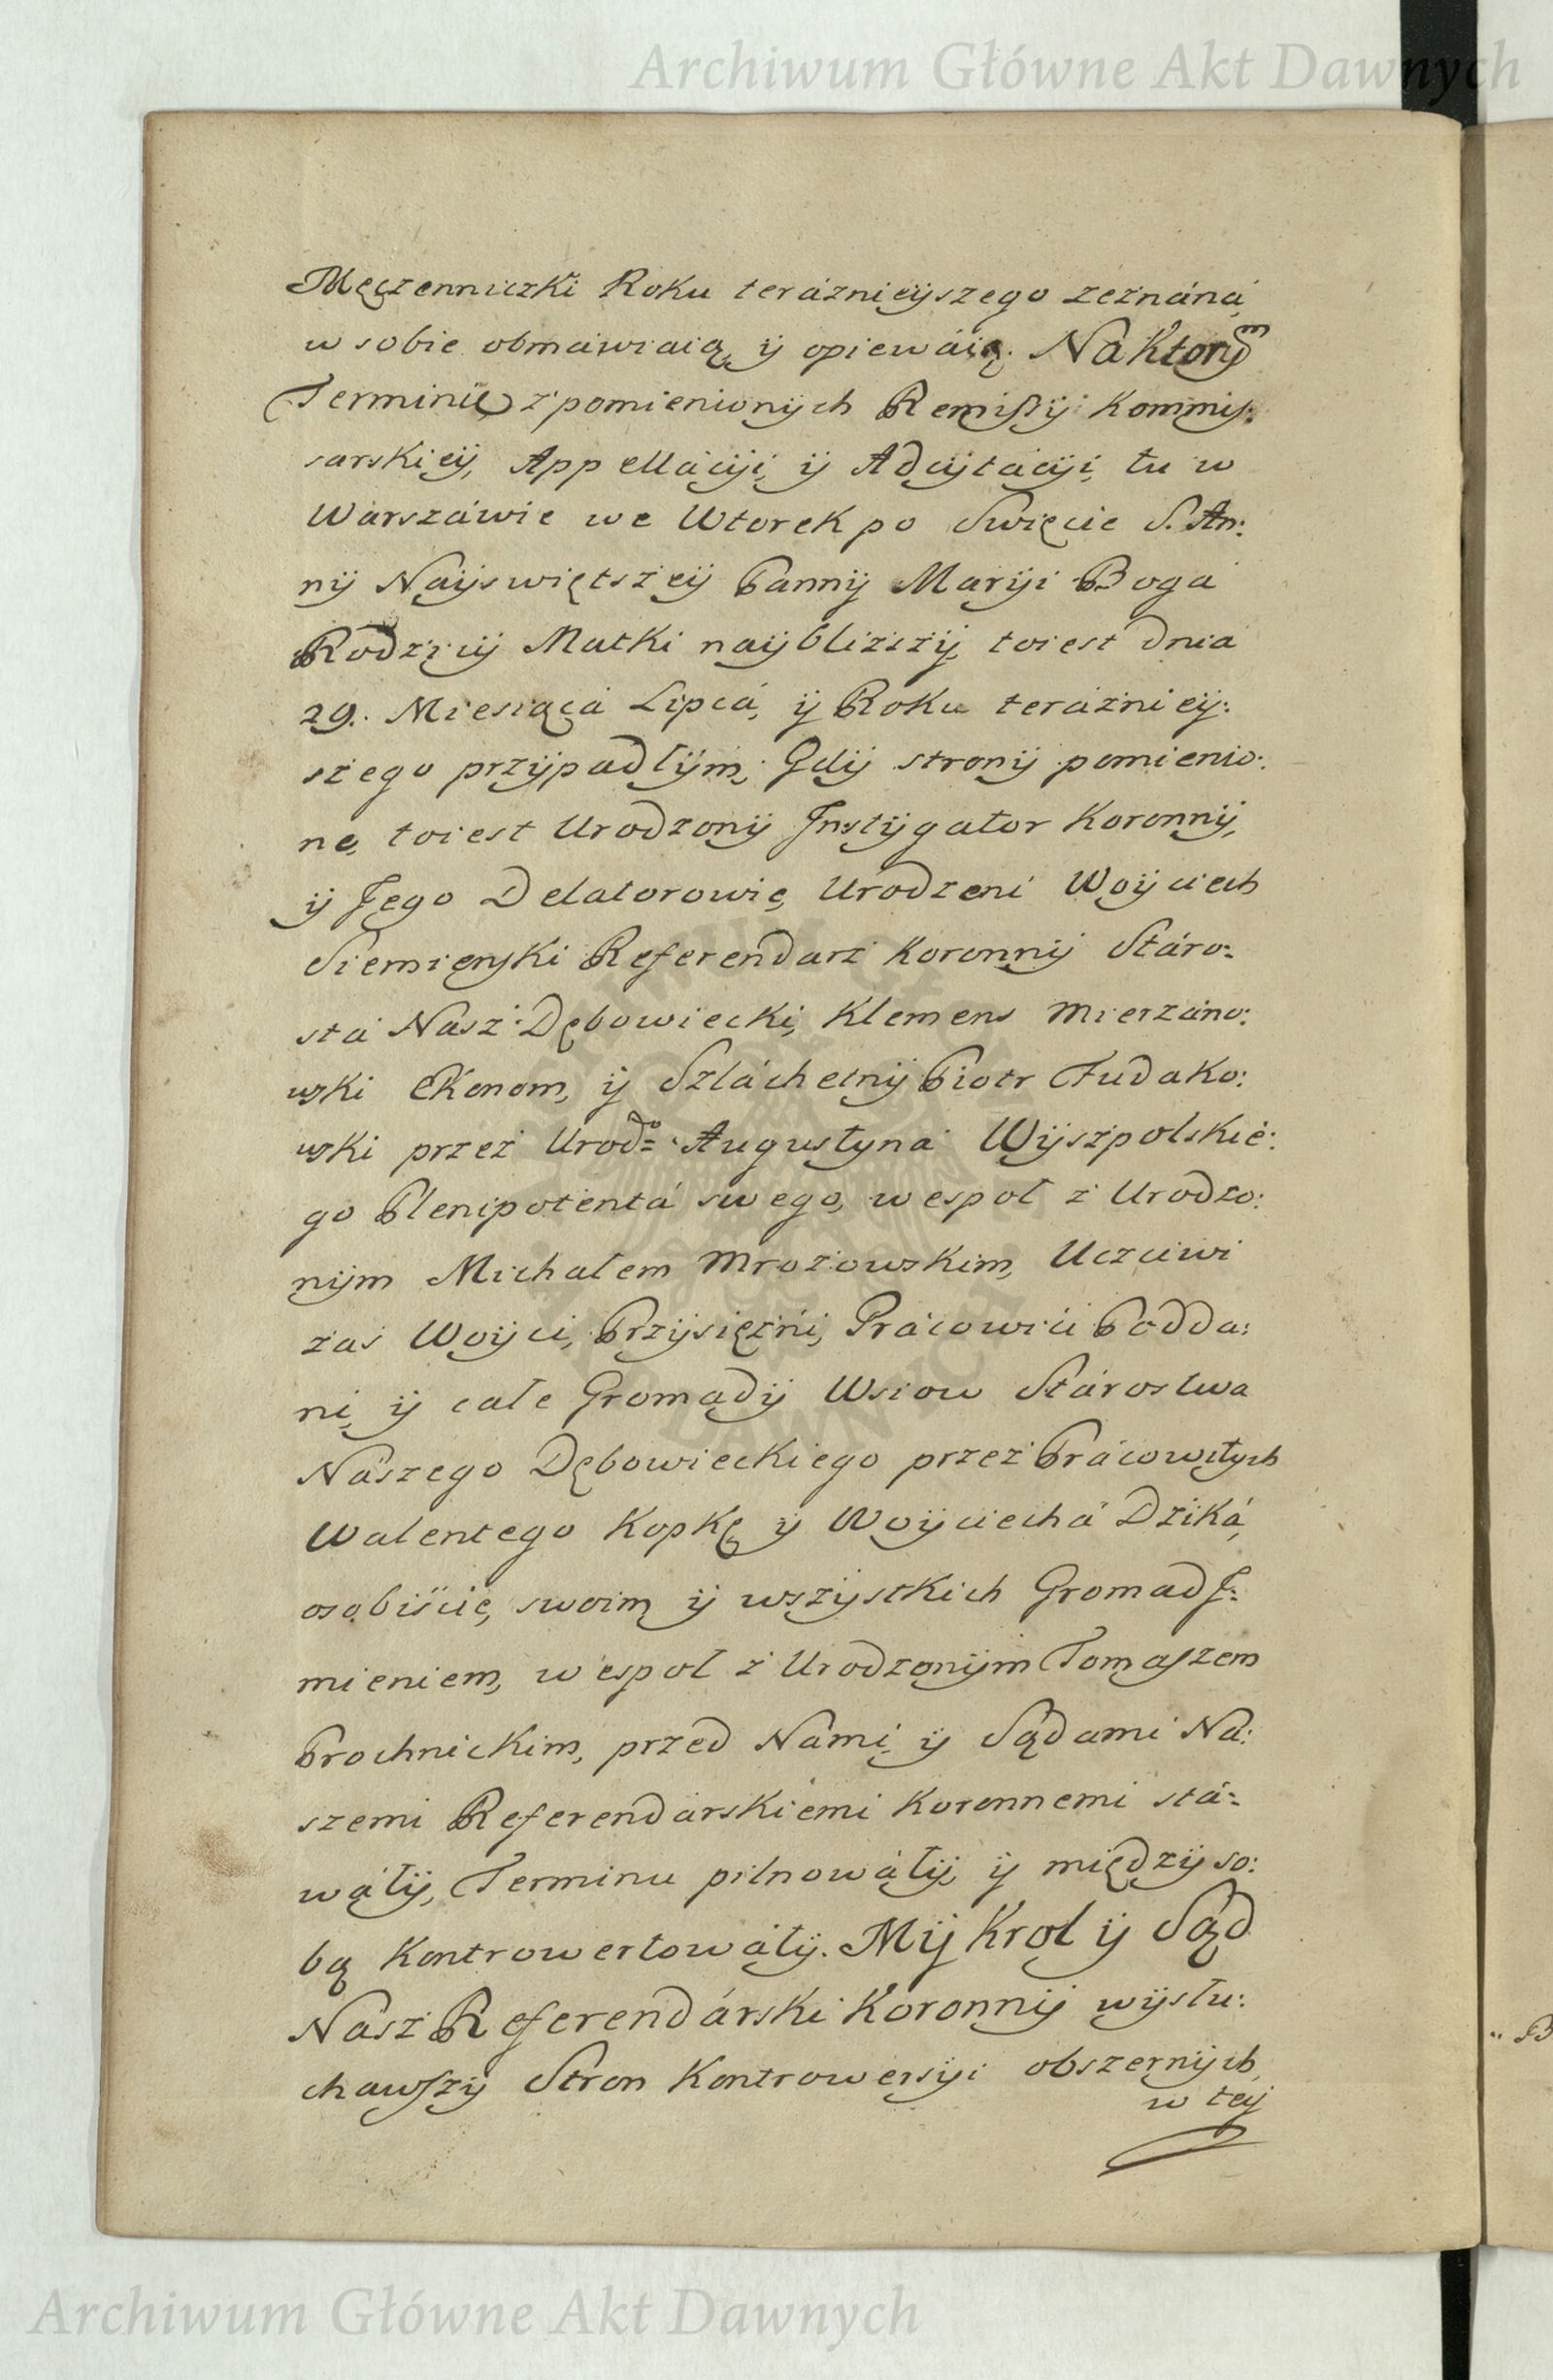 Archiwum Główne Akt Dawnych
Męczenniczki Roku teráznieÿszego zeznáná,
w sobie obmáwiáią, ÿ opiewáią. Ná ktorÿm
Terminie z pomienionÿch Remissÿi Kommis:
sarskieÿ, Appellácÿi, ÿ Adcÿtácÿi, tu w
Wárszáwie we Wtorek po Swięcie S. An:
nÿ Naÿswiętszeÿ Pannÿ Marÿi Boga
Rodzicÿ Matki naÿblizszÿ, toiest dnia
29. Miesiąca Lipcá, ÿ Roku teráznieÿ:
szego przÿpadłÿm; Gdÿ stronÿ pomienio:
ne, toiest Urodzonÿ Instÿgator Koronnÿ,
ÿ Jego Delatorowie, Urodzeni Woÿciech
Siemieński Referendarz Koronnÿ Stáro:
stá Nasz Dębowiecki, Klemens Mierzáno:
wski Ekonom, ÿ Szláchetnÿ Piotr Tudako:
wski przez Urodo: Augustyna Wÿszpolskie:
go Plenipotentá swego, wespoł z Urodzo:
nÿm Michałem Mrozowskim, Uczciwi
zas Woÿci, Przÿsięzni, Prácowici Podda:
ni, ÿ całe Gromadÿ Wsiow Stárostwa
Nászego Dębowieckiego przez Prácowitych
Walentego Kopkę ÿ Woÿciechá Dziká,
osobiście, swoim ÿ wszÿstkich Gromad J:
mieniem, wespoł z Urodzonÿm Tomaszem
Prochnickim, przed Námi, ÿ Sądami Ná:
szemi Referendárskiemi Koronnemi stá:
wáłÿ, Terminu pilnowáłÿ, ÿ międzÿ so:
bą Kontrowertowáłÿ. Mÿ Krol ÿ Sąd
Nász Referendárski Koronnÿ wÿsłu:
chawszÿ Stron Kontrowersÿi obszernÿch,
w teÿ
Archiwum Główne Akt Dawnych